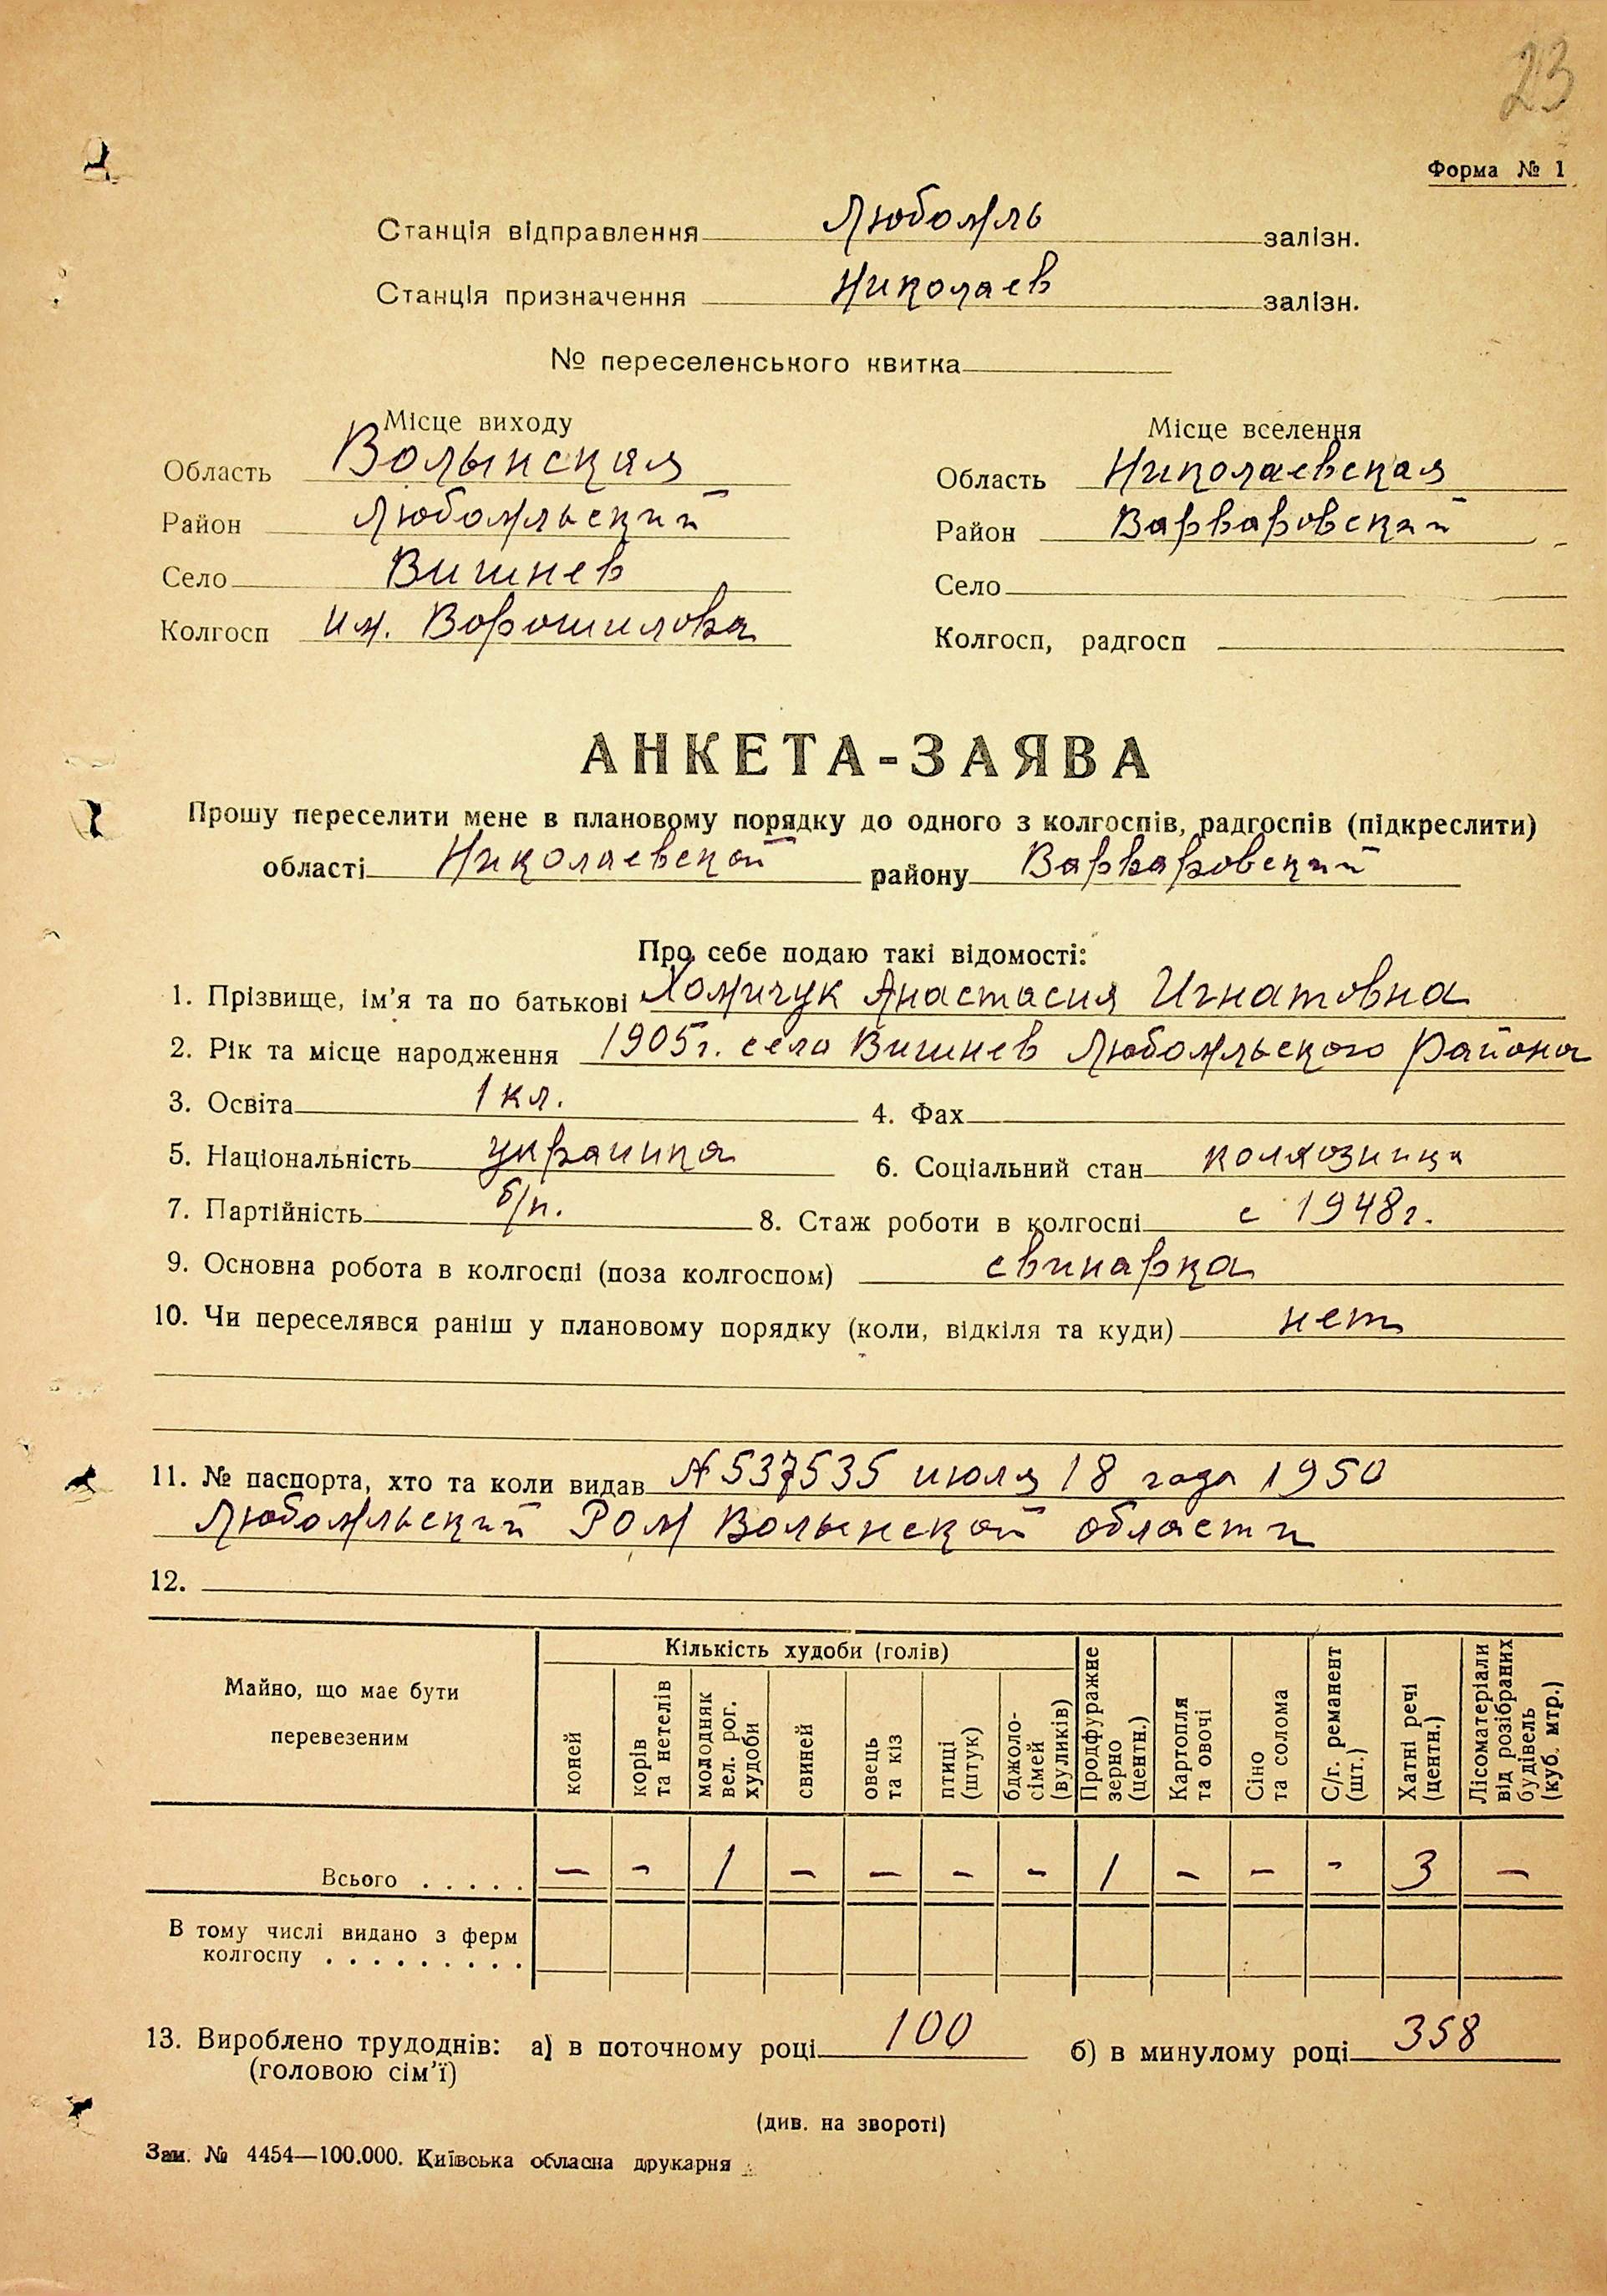 23
Форма № 1
Станція відправлення Любомль залізн.
Станція призначення Николаев залізн.
№ переселенського квитка
Місце виходу
Область Волынская
Район Любомльский
Село Вишнев
Колгосп им. Ворошилова
Місце вселення
Область Николаевская
Район Варваровский
Село
Колгосп, радгосп
АНКЕТА-ЗАЯВА
Прошу переселити мене в плановому порядку до одного з колгоспів, радгоспів (підкреслити)
області Николаевской району Варваровский
Про себе подаю такі відомості:
1. Прізвище, ім'я та по батькові Хомичук Анастасия Игнатовна
2. Рік та місце народження 1905г. село Вишнев Любомльского района
3. Освіта 1 кл. 4. Фах
5. Національність украинка 6. Соціальний стан колхозница
7. Партійність б/п. 8. Стаж роботи в колгоспі с 1948г.
9. Основна робота в колгоспі (поза колгоспом) свинарка
10. Чи переселявся раніш у плановому порядку (коли, відкіля та куди) нет
11. № паспорта, хто та коли видав № 537535 июля 18 года 1950
Любомльский РОМ Волынской области
12.
Майно, що має бути
перевезеним
Кількість худоби (голів)
коней
корів
та нетелів
молодняк
вел. рог.
худоби
свиней
овець
та кіз
птиці
(штук)
бджоло-
сімей
(вуликів)
Продфуражне
зерно
(центн.)
Картопля
та овочі
Сіно
та солома
С/г. реманент
(шт.)
Хатні речі
(центн.)
Лісоматеріали
від розібраних
будівель
(куб. мтр.)
Всього . . . . . — - 1 — — - - 1 - - - 3 —
В тому числі видано з ферм
колгоспу . . . . . . . . .
13. Вироблено трудоднів: а) в поточному році 100 б) в минулому році 358
(головою сім'ї)
(див. на звороті)
Зам. № 4454—100.000. Київська обласна друкарня